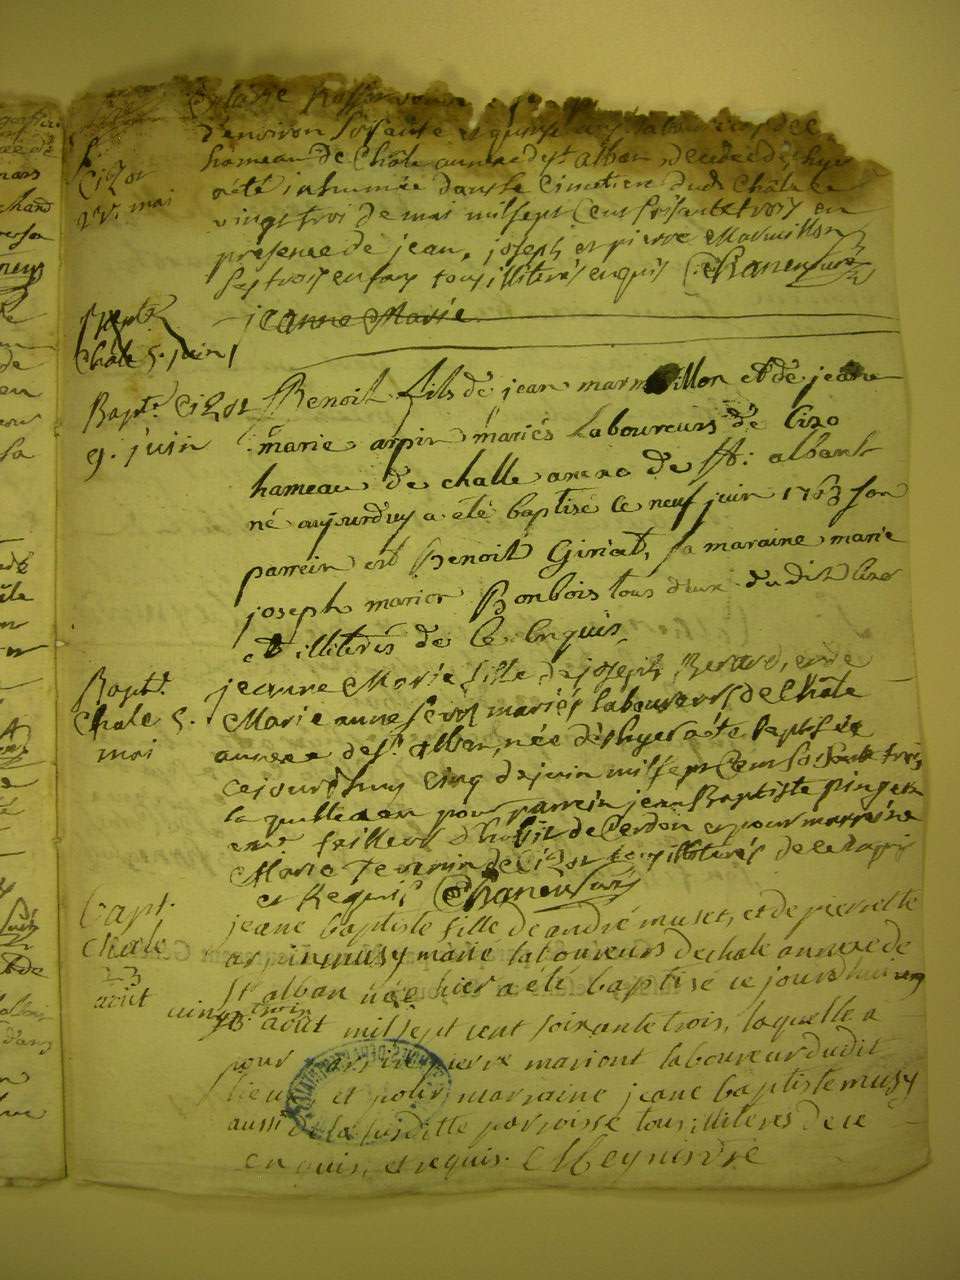 d'environ soisante et quinse ans laboureur de
hameau de Châle annexe de st alban decedee d'hyer
a été inhumée dans le cimetiere dud. Châle ce
vingt troi de mai mil sept cent soisante trois en
presence de jean, joseph et pierre Marmillon
ses trois enfans tous illiterés enquis Chaneu curé
S.
Cizor
23. mai
jeanne Marie
Bapt.
Châle 5. juin
Bapt. Cizor
9. juin
Benoit fils de jean marmillon et de jeane
marie arpin mariés laboureurs de Cizo
hameau de challe annexe de st: alban
né aujourd'uy a été baptisé ce neuf juin 1763 son
parrein est Benoit Giriat, sa maraine marie
joseph marion Bonbois tous deux du dit Cizor
et illiterés de ce enquis
Bapt.
Chale 5.
mai
jeanne Marie fille de joseph Berard, et de
Marie anne mariés laboureurs de Châle
annexe de st. Alban, née d'éshyer a été baptisée
cejourdhuy cinq de juin mil sept cent soisante trois
laquelle a eu pour parrein jean Baptiste pingeon
tailleur d'habit de Cerdon et pour marraine
Marie Tevenin de Cizor tous illiterés de ce enquis
et Requis Chaneu curé
Bapt.
Chale
23
août
jeane baptiste fille de andré muset, et de pierrette
arpin musy marié laboureurs de chale annexe de
st alban née hier a été baptisé ce jourdhui
vingt trois août mil sept cent soixante trois, laquelle a
pour parrin pierre mariont laboureur dudit
lieu et pour marraine jeane baptiste musy
aussi de la susditte parroisse tous illiteres de ce
enquis, et requis. Meynestre